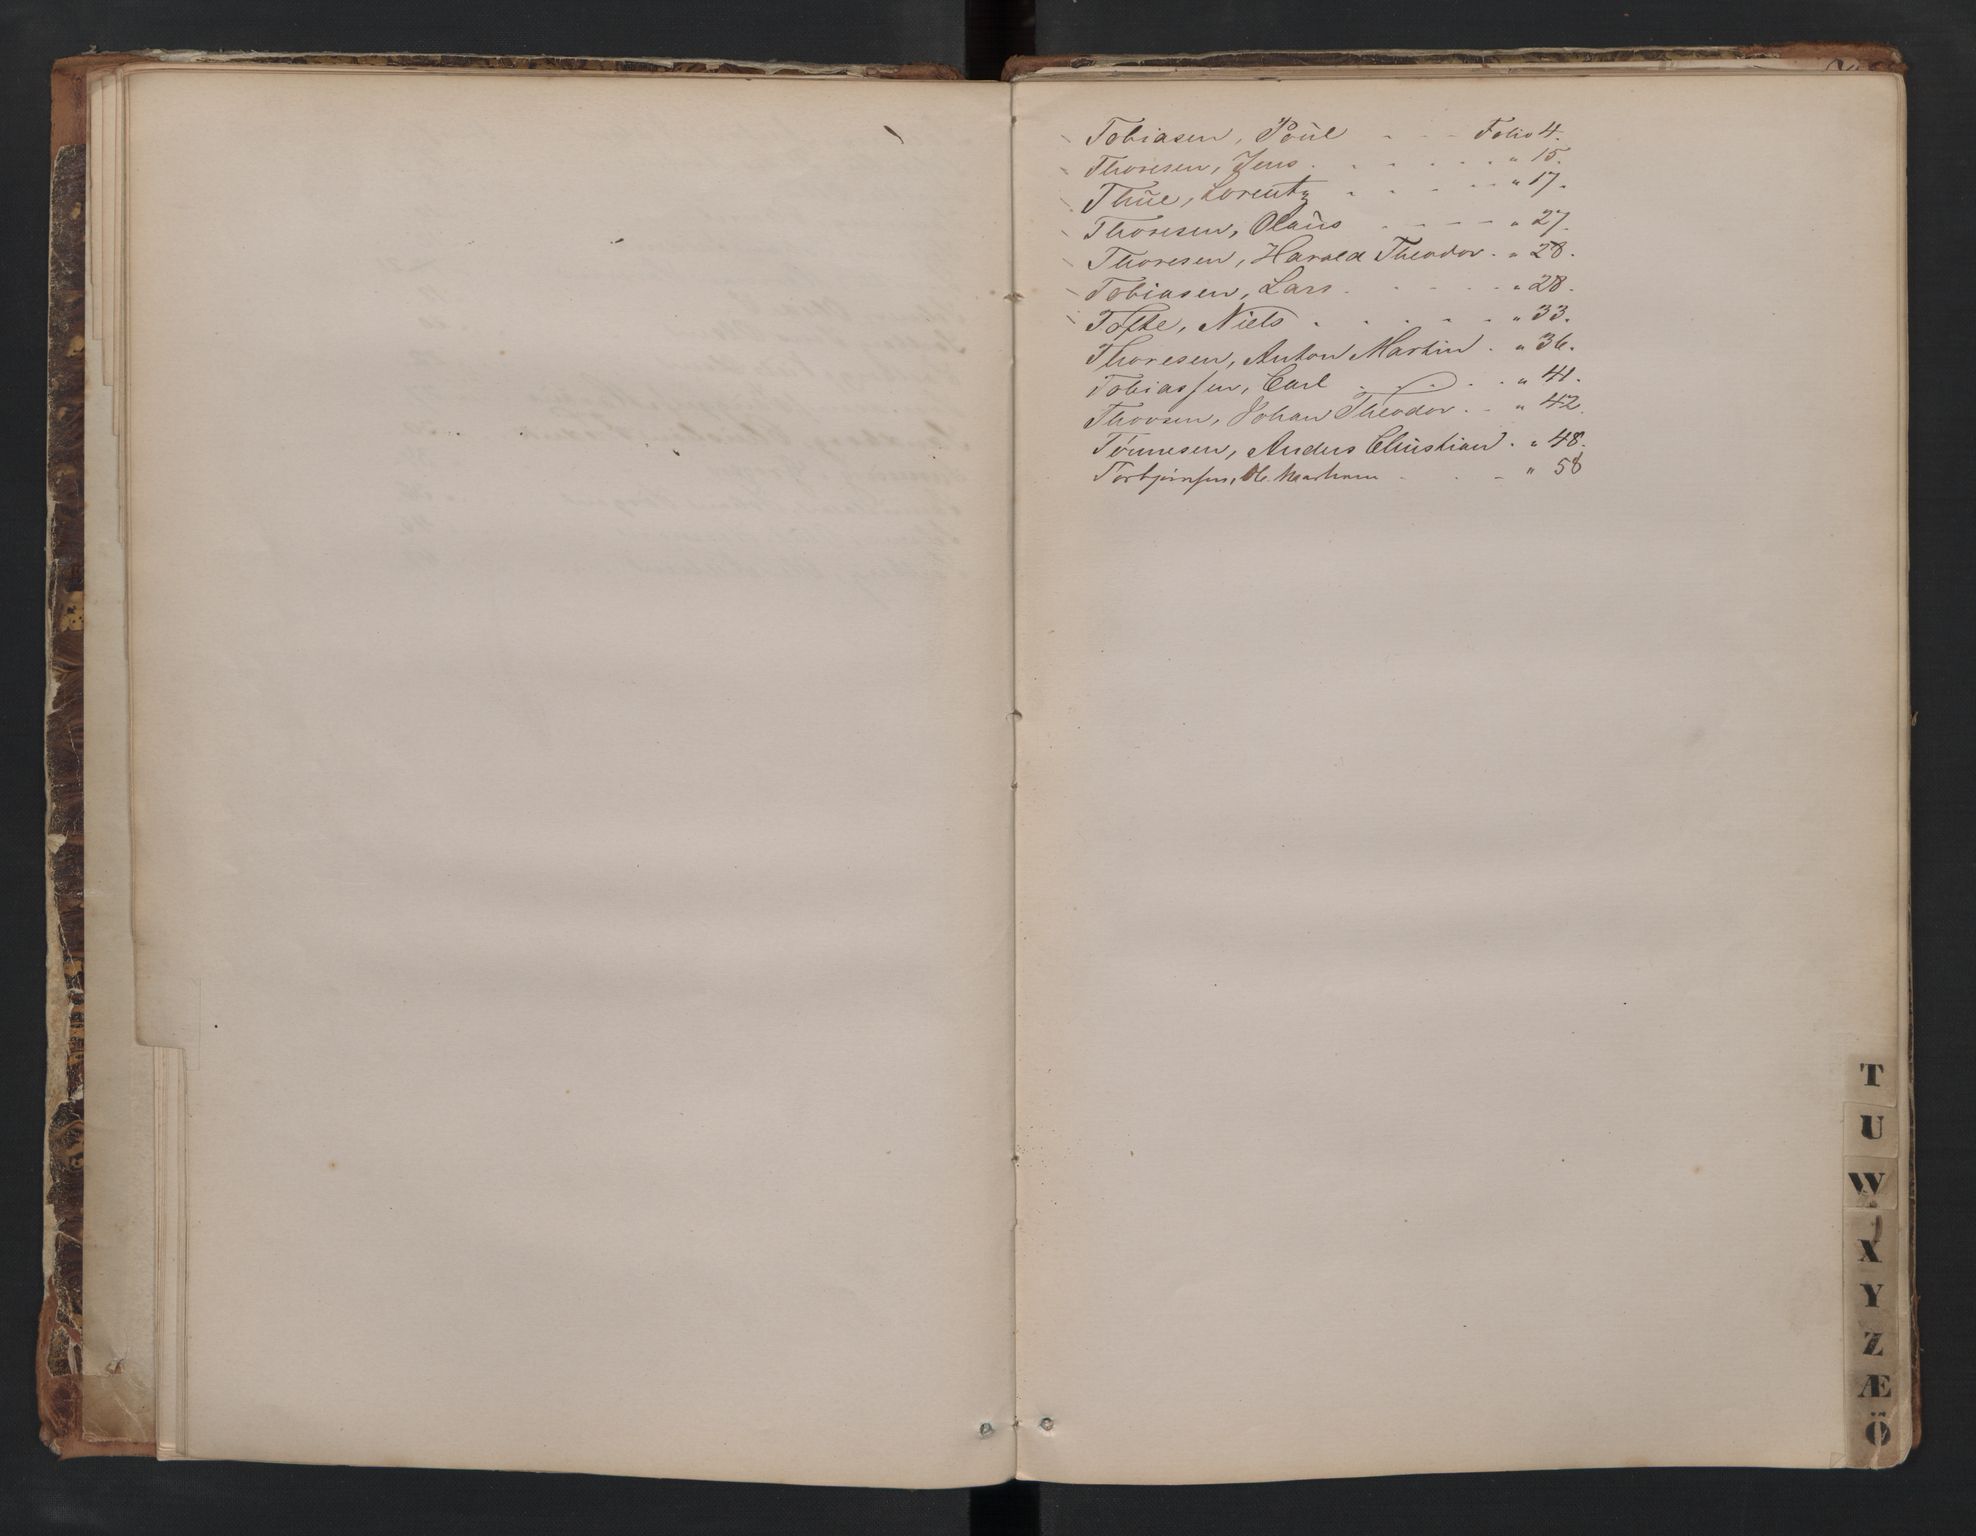 Tobiasen, Poül - - - Folio 4.
Thoresen, Jens . . . . . . " 15.
Thüe, Lorentz . . . . . " 17.
Thoresen, Olaüs . . - - - " 27.
Thoresen, Harald Theodor . " 28.
Tobiasen, Lars . . . . . " 28.
Tofte, Niels . . . . . " 33.
Thoresen, Anton Martin . " 36.
Tobiassen, Carl . . . . . " 41.
Thorsen, Johan Theodor . . " 42.
Tönnesen, Anders Christian . " 48.
Torbjørnsen, Ole . . - " 58
T
U
W
X
Y
Z
Æ
Ö